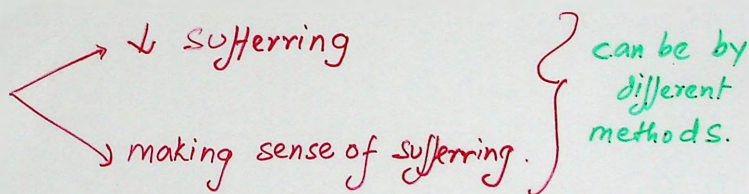 ↓ sufferring
making sense of sufferring.
can be by
different
methods.